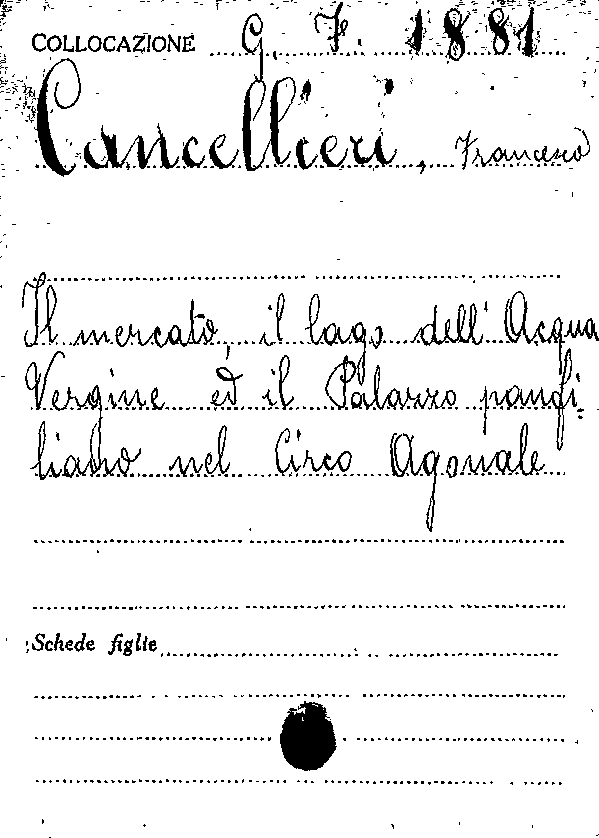 COLLOCAZIONE G. F. 1881
Cancellieri, Francesco
Il mercato, il lago dell'Acqua
Vergine ed il Palazzo panfi-
liano nel Circo Agonale
Schede figlie